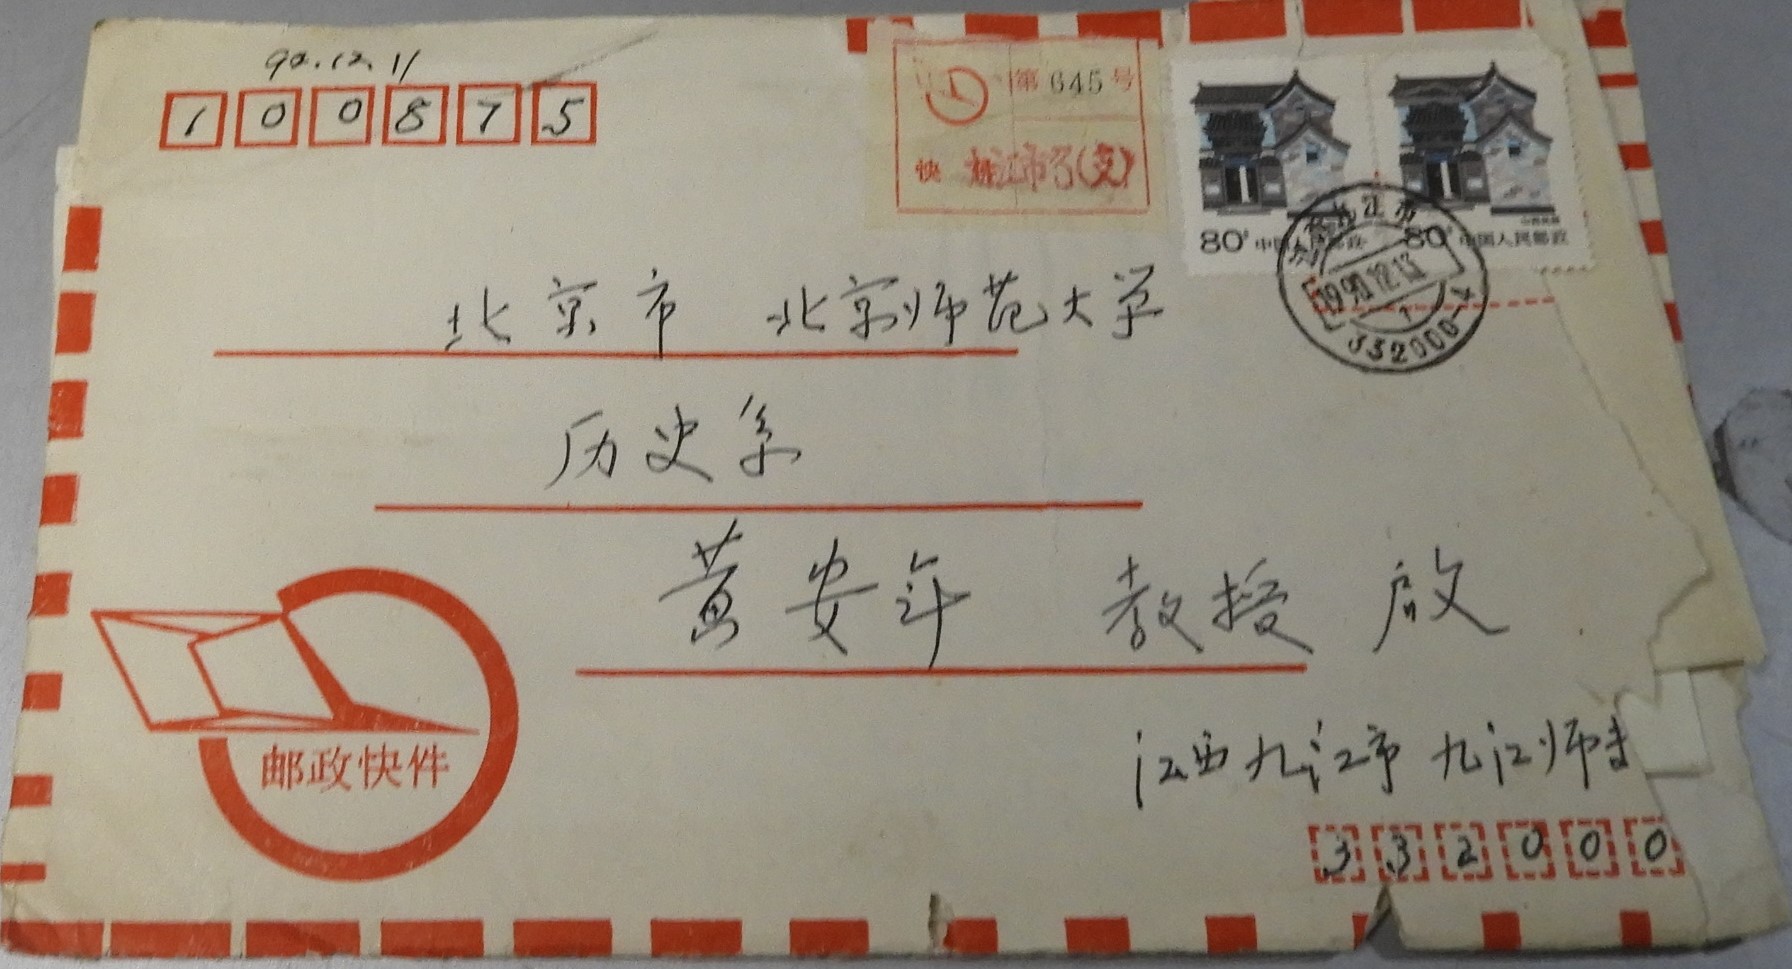 90.12.11
100875
第645号
快 九江市3(支)
80分 中国人民邮政 80分 中国人民邮政
山西民居
江西九江市
1990.12.13
332000
北京市 北京师范大学
历史系
黄安年 教授 启
邮政快件
江西九江市 九江师专
332000